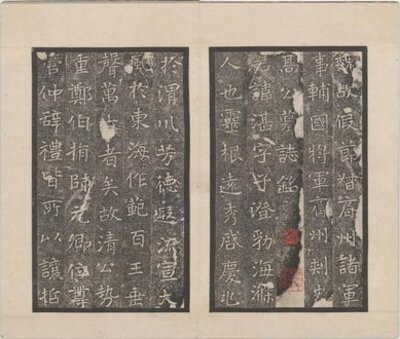 魏故假節督齊州諸軍
事輔國將軍齊州刺史
高公墓誌銘
君諱湛字子澄勃海滌
人也靈根遠秀啓慶兆
於渭川芳德遐流宣大
風於東海作範百王垂
聲萬古者矣故清公勢
重鄭伯捐師元卿位尊
管仲辭禮皆所以讓哲